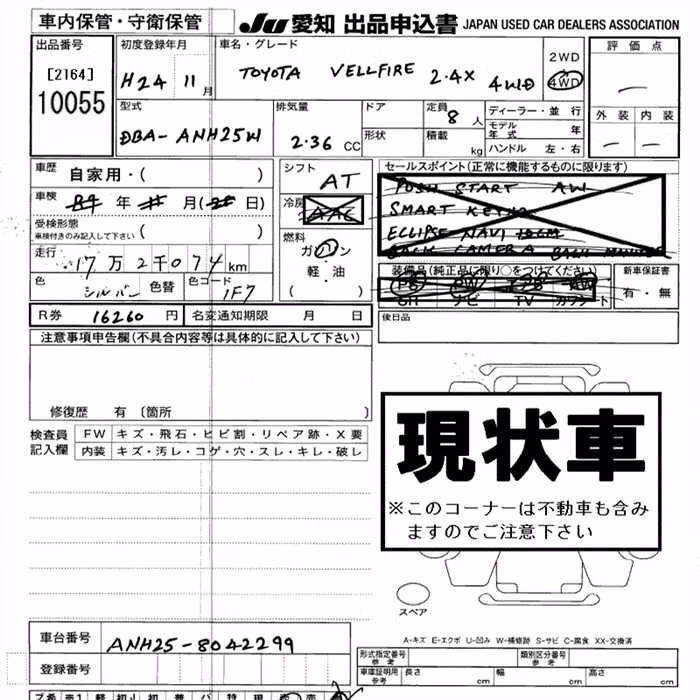 車内保管・守衛保管
JU 愛知 出品申込書 JAPAN USED CAR DEALERS ASSOCIATION
出品番号
[2164]
10055
初度登録年月
H24 11月
車名・グレード
TOYOTA VELLFIRE 2.4X 4WD
2WD
4WD
評価点
外装 内装
型式
DBA-ANH25W
排気量
2.36 CC
ドア
形状
定員
8人
積載
kg
ディーラー・並行
モデル年式 年
ハンドル 左・右
車歴 自家用・( )
車検 年 月( 日)
受検形態
車検付きのみ記入して下さい ( )
走行 17万2千074km
色 シルバー 色替 色コード 1F7
シフト
AT
冷房
AAC
燃料
ガソリン
軽・油
( )
セールスポイント(正常に機能するものに限ります)
PUSH START AW
SMART KEY
ECLIPSE NAVI
BACK CAMERA BACK MONITOR
装備品(純正品に限り○をつけてください)
PS PW エアB AW
SH ナビ TV カワシート
新車保証書
有・無
R券 16260円 名変通知期限 月 日
後日品
注意事項申告欄(不具合内容等は具体的に記入して下さい)
修復歴 有〔箇所 〕
検査員記入欄
FW キズ・飛石・ヒビ割・リペア跡・X要
内装 キズ・汚レ・コゲ・穴・スレ・キレ・破レ
現状車
※このコーナーは不動車も含み
ますのでご注意下さい
スペア
A-キズ E-エクボ U-凹み W-補修跡 S-サビ C-腐食 XX-交換済
車台番号 ANH25-8042299
登録番号
形式指定番号 参考
類別区分番号 参考
車庫証明用 参考 長さ cm 幅 cm 高さ cm